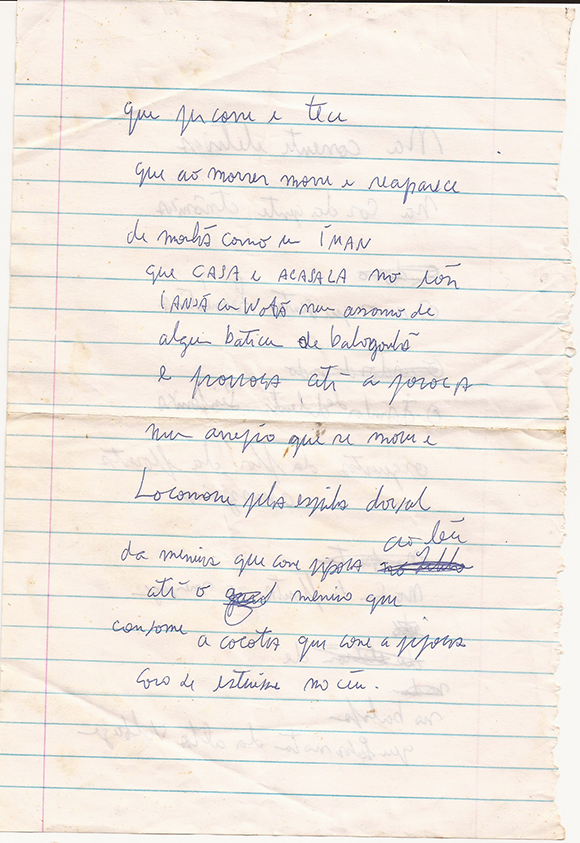 que percorre e tece
que ao morrer morre e reaparece
de manhã como um ÍMAN
que CASA e ACASALA no
IANSÃ com Wotã num assomo de
algum baticum de
e provoca até a pororoca
num arrepio que se move e
Locomove pela espinha dorsal
ao léu
da menina que come pipoca no
até o menino que
consome a cocota que come a pipoca
no céu.